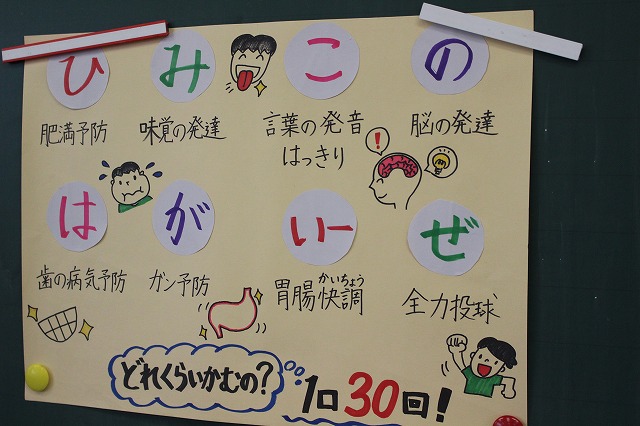 ひみこの
肥満予防 味覚の発達 言葉の発音はっきり 脳の発達
!
はがいーぜ
歯の病気予防 ガン予防 胃腸快調 全力投球
かいちょう
どれくらいかむの?
1口30回!